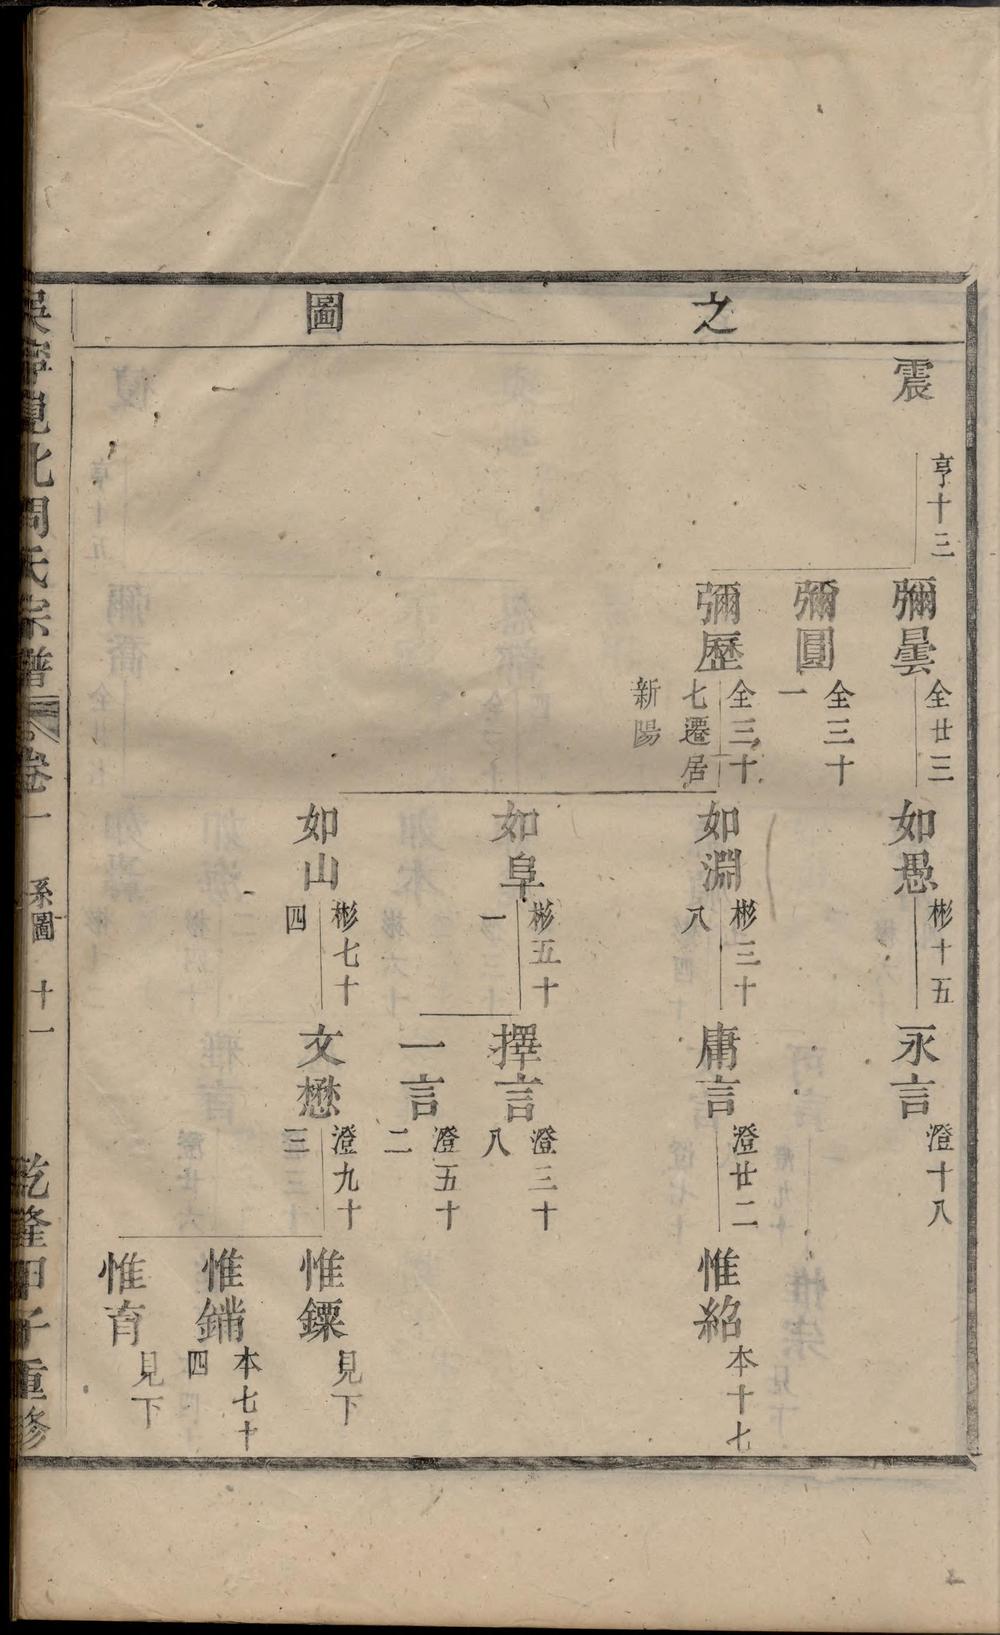 之圖
震
亨十三
彌曇
全廿三
彌圓
全三十
一
彌歷
全三十
七遷居
新陽
如愚
彬十五
如淵
彬三十
八
如阜
彬五十
一
如山
彬七十
四
永言
澄十八
庸言
澄廿二
擇言
澄三十
八
一言
澄五十
二
文懋
澄九十
三
惟紹
本十七
惟鏢
見下
惟鏞
本七十
四
惟育
見下
吳寧晁北周氏宗譜
卷一
系圖
十一
乾隆甲子重修